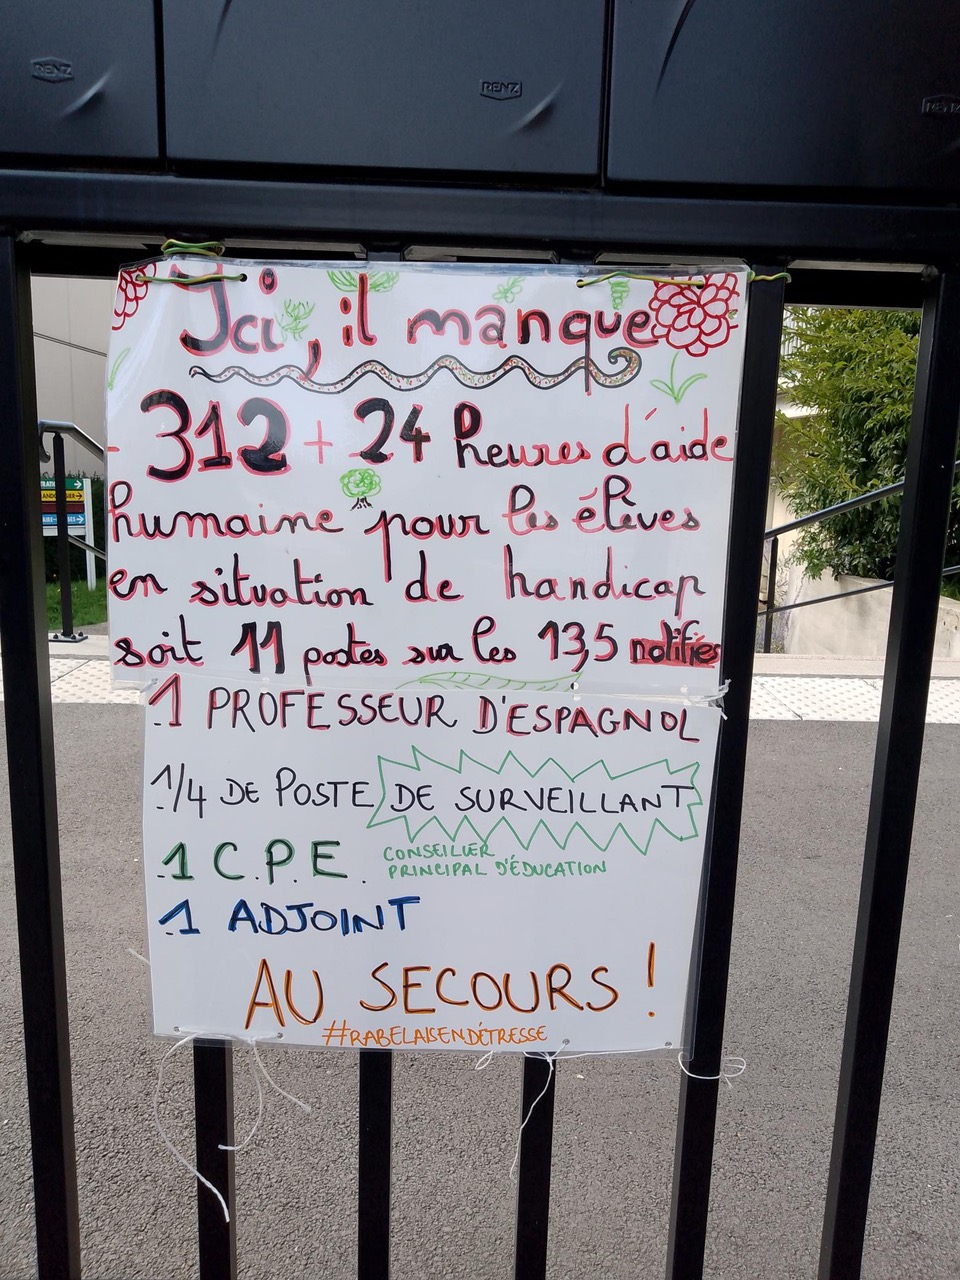 RENZ
RENZ
RENZ
Ici, il manque
- 312 + 24 heures d'aide
humaine pour les élèves
en situation de handicap
soit 11 postes sur les 13,5 notifiés
.1 PROFESSEUR D'ESPAGNOL
.1/4 DE POSTE DE SURVEILLANT
.1 C.P.E.
CONSEILLER
PRINCIPAL D'ÉDUCATION
.1 ADJOINT
AU SECOURS !
#RABELAISENDÉTRESSE